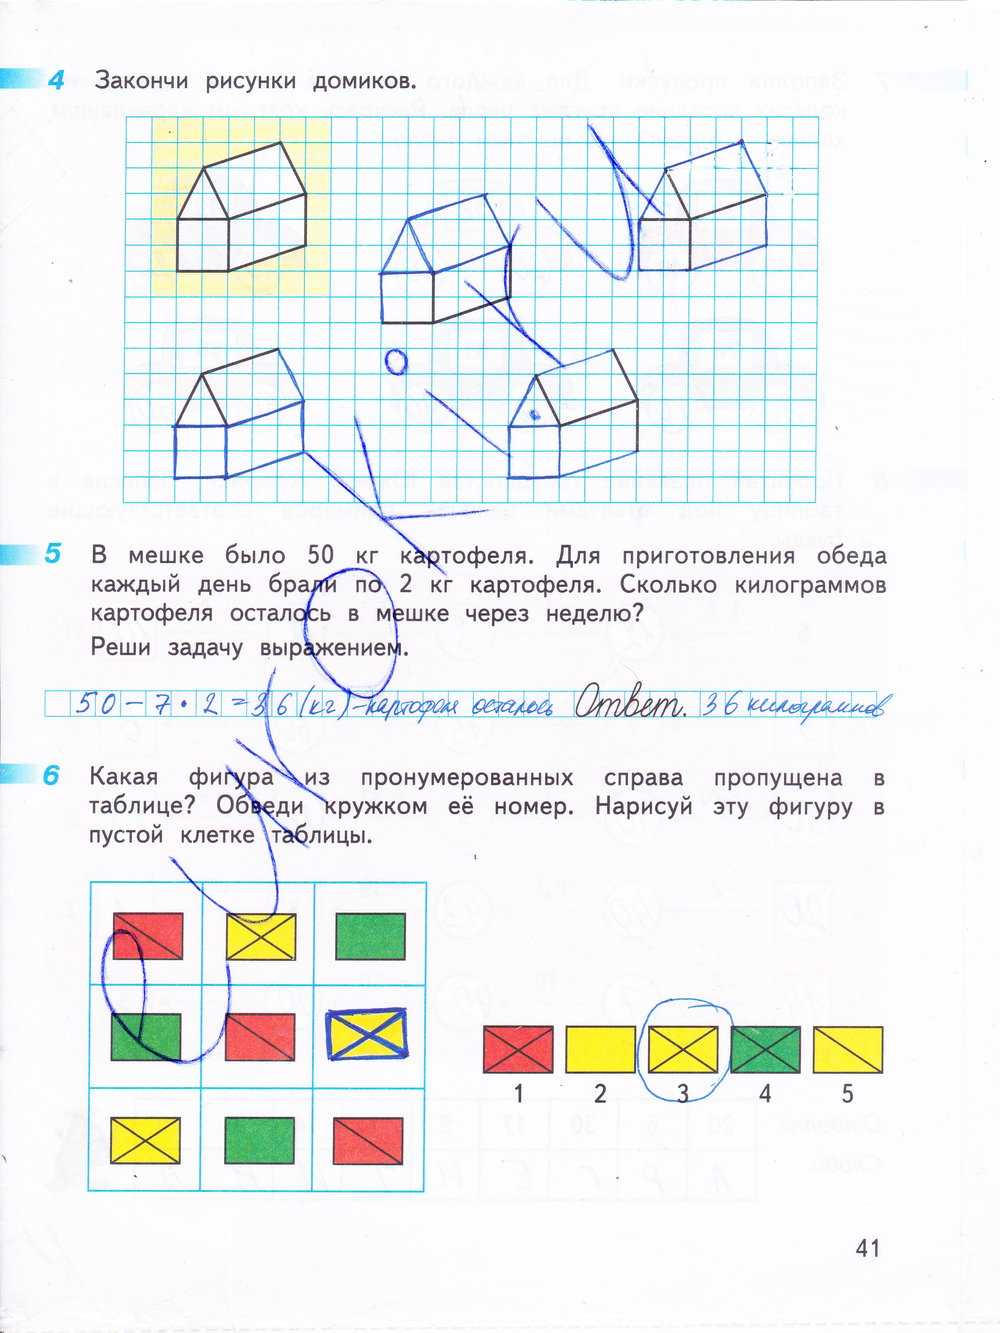 4 Закончи рисунки домиков.
5 В мешке было 50 кг картофеля. Для приготовления обеда
каждый день брали по 2 кг картофеля. Сколько килограммов
картофеля осталось в мешке через неделю?
Реши задачу выражением.
50 - 7 • 2 = 36 (кг) - картофеля осталось Ответ. 36 килограммов
6 Какая фигура из пронумерованных справа пропущена в
таблице? Обведи кружком её номер. Нарисуй эту фигуру в
пустой клетке таблицы.
1 2 3 4 5
41